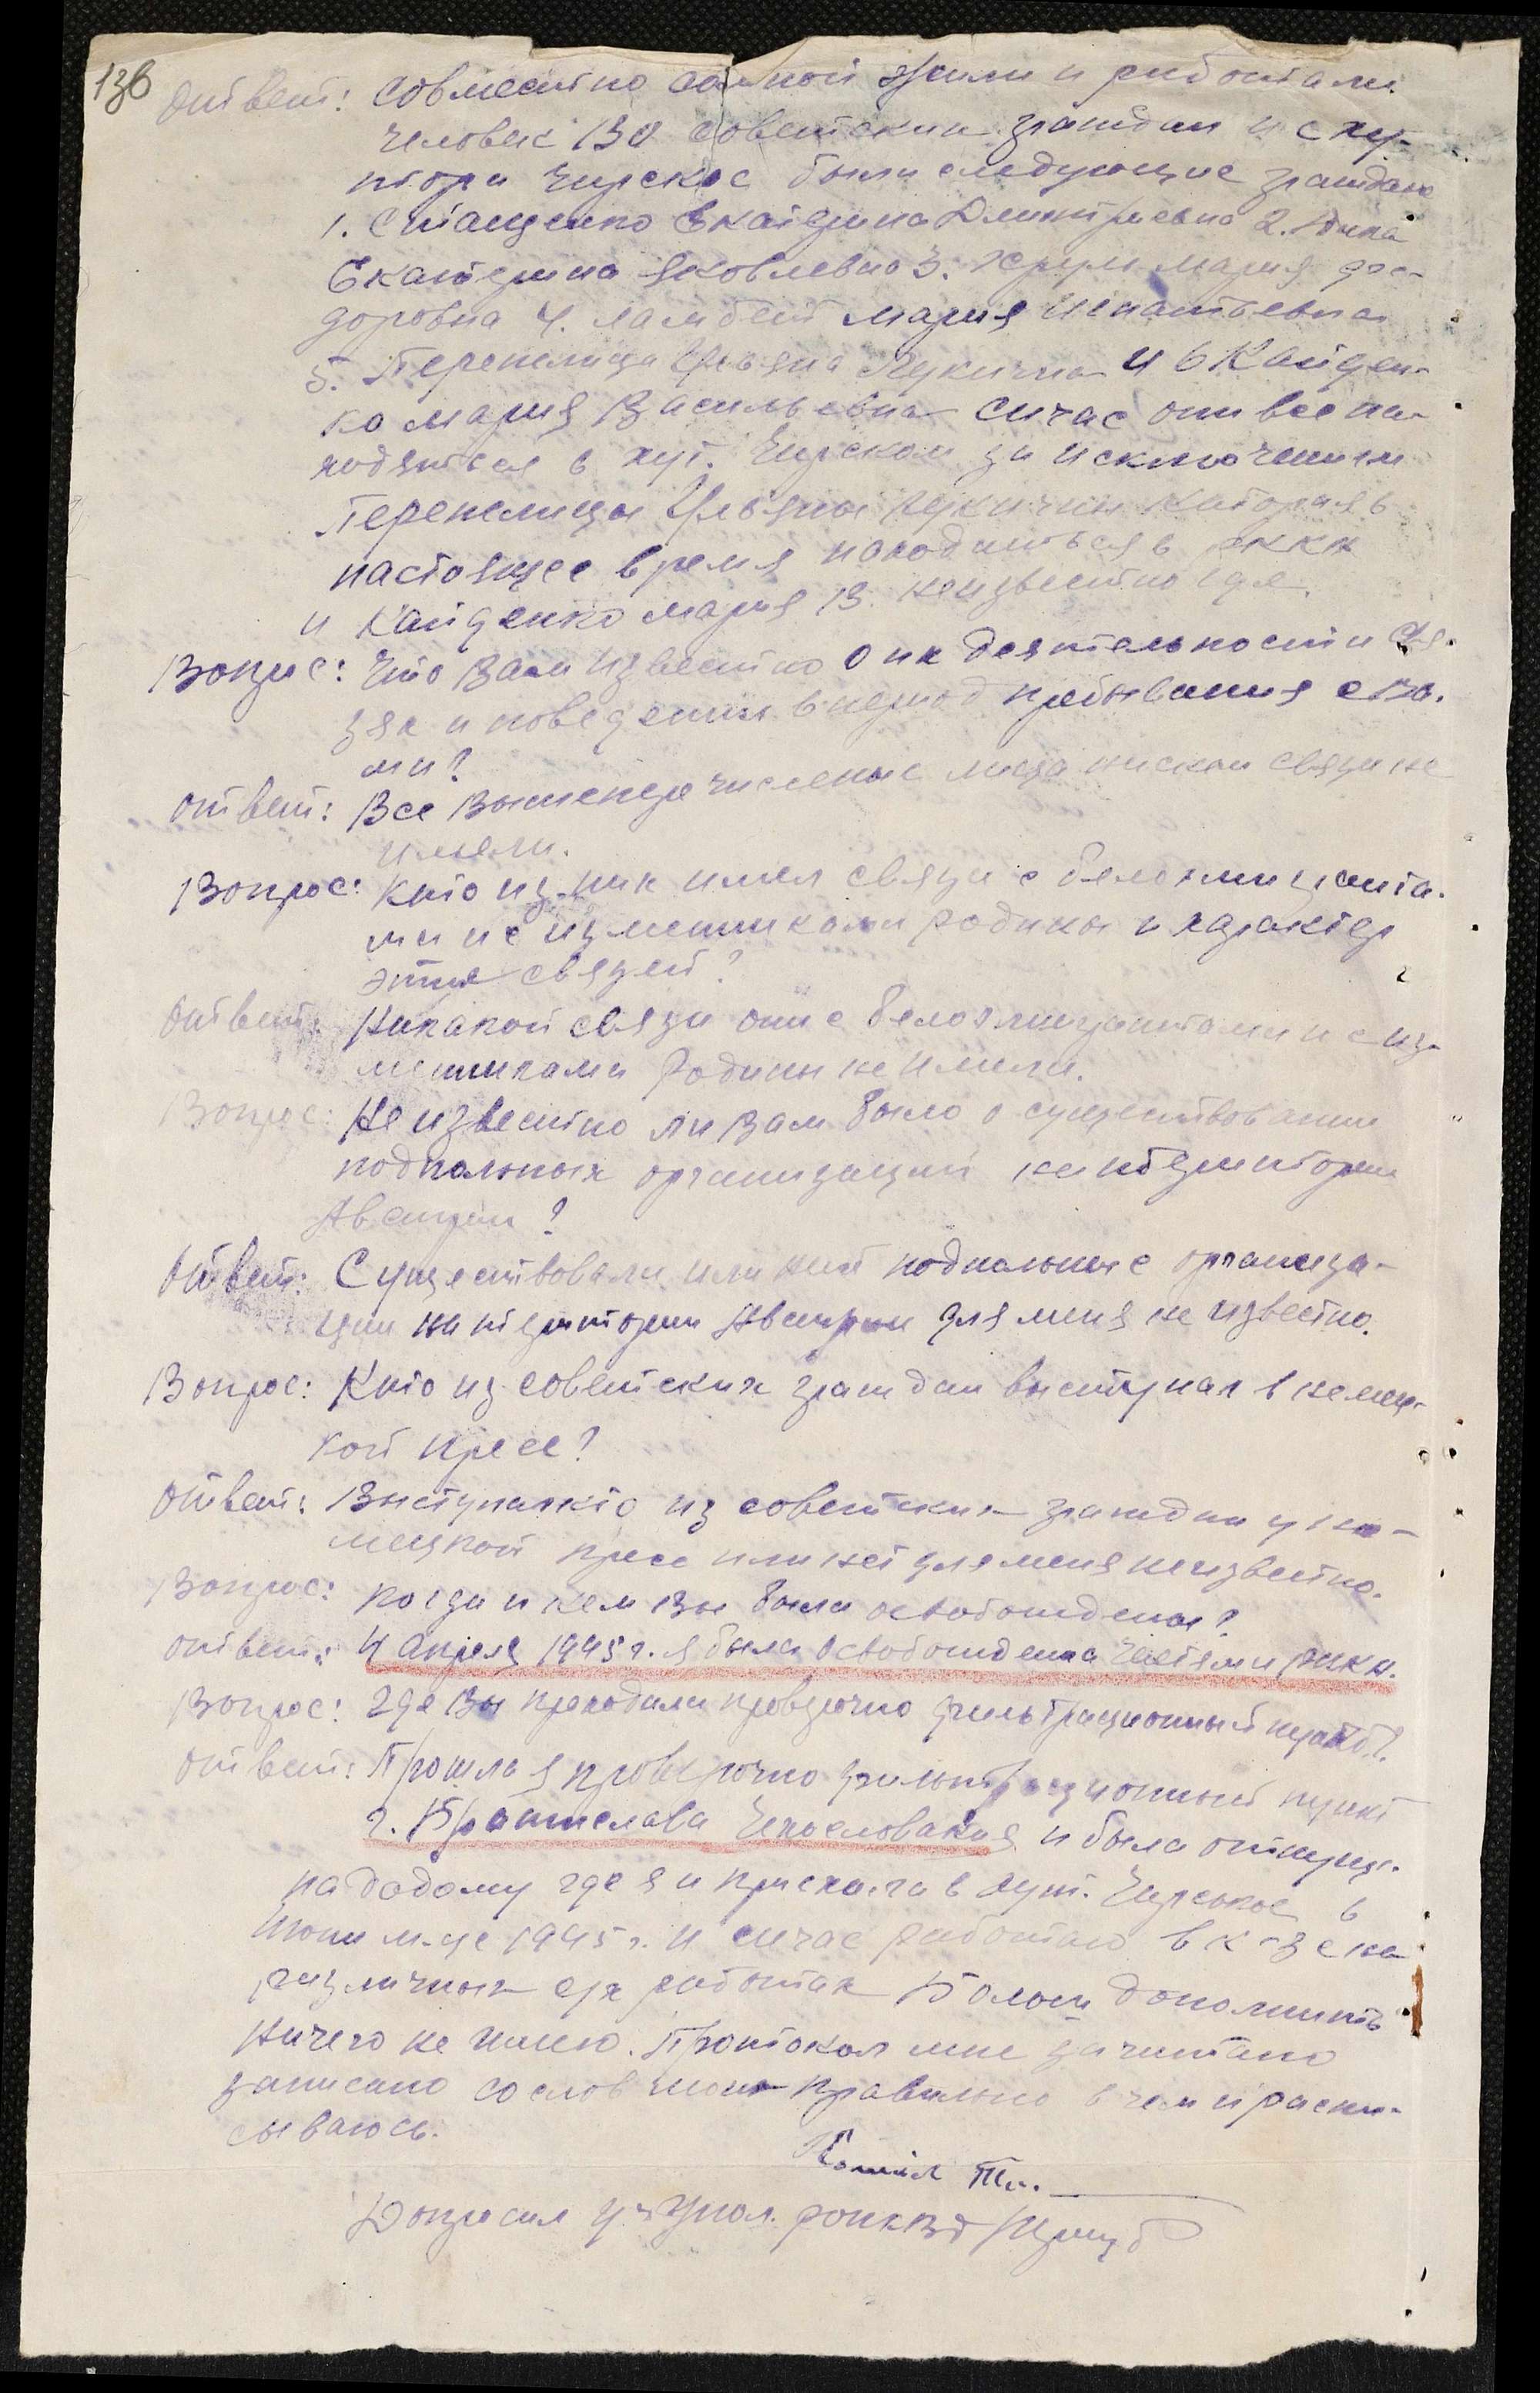 13в
Ответ: Совместно со мной жили и работали
человек 130 советских граждан и с ху-
тора Чирское были следующие граждане
1. Стащенко Екатерина Дмитриевна 2.
Екатерина Яковлевна 3. Мария Фе-
доровна 4. Мария Игнатьевна
5. Перепелица Ульяна Лукична и 6 Кайден-
ко Мария Васильевна сичас они все на-
ходяться в хут. Чирском за исключением
Перепелицы Ульяны Лукичны которая в
настоящее время находиться в РККА
и Кайденко Мария В. неизвестно где.
Вопрос: Что Вам известно о их деятельности свя-
зях и поведении в период пребывания с ва-
ми?
Ответ: Все вышеперечисленые лица никакои связи не
имели.
Вопрос: Кто из них имел связи с белоэмигранта-
ми и с изменниками родины и характер
этих связей?
Ответ: Никакой связи они с белоэмигрантами и с из-
менниками Родины не имели.
Вопрос: Неизвестно ли Вам было о существовании
подпольных организаций на територии
Австрии?
Ответ: Существовали или нет подпольные организа-
ции на територии Австрии для меня не известно.
Вопрос: Кто из советских граждан выступал в немец-
кой пресе?
Ответ: Выступал кто из советских граждан у не-
мецкой пресе или нет для меня неизвестно.
Вопрос: Когда и кем Вы были освобождены?
Ответ: 4 апреля 1945 г. я была освобождена частями РККА.
Вопрос: Где Вы проходили проверочно фильтрационный пункт?
Ответ: Прошла я проверочно фильтрационный пункт
г. Братислава Чехословакия и была отпуще-
на додому где я и приехала в хут. Чирское в
Июни м-це 1945 г. и сичас работаю в к-зе на
различных с/х работах Больш дополнить
ничего не имею. Протокол мне зачитано
записано со слов моих правильно в чем и распи-
сываюсь.
Допросил уч. Упол. РОНКВД